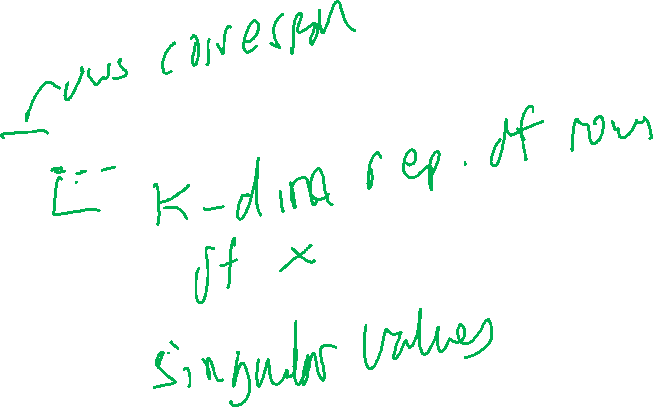 rows correspon
K-dim rep. of rows
of x
singular values